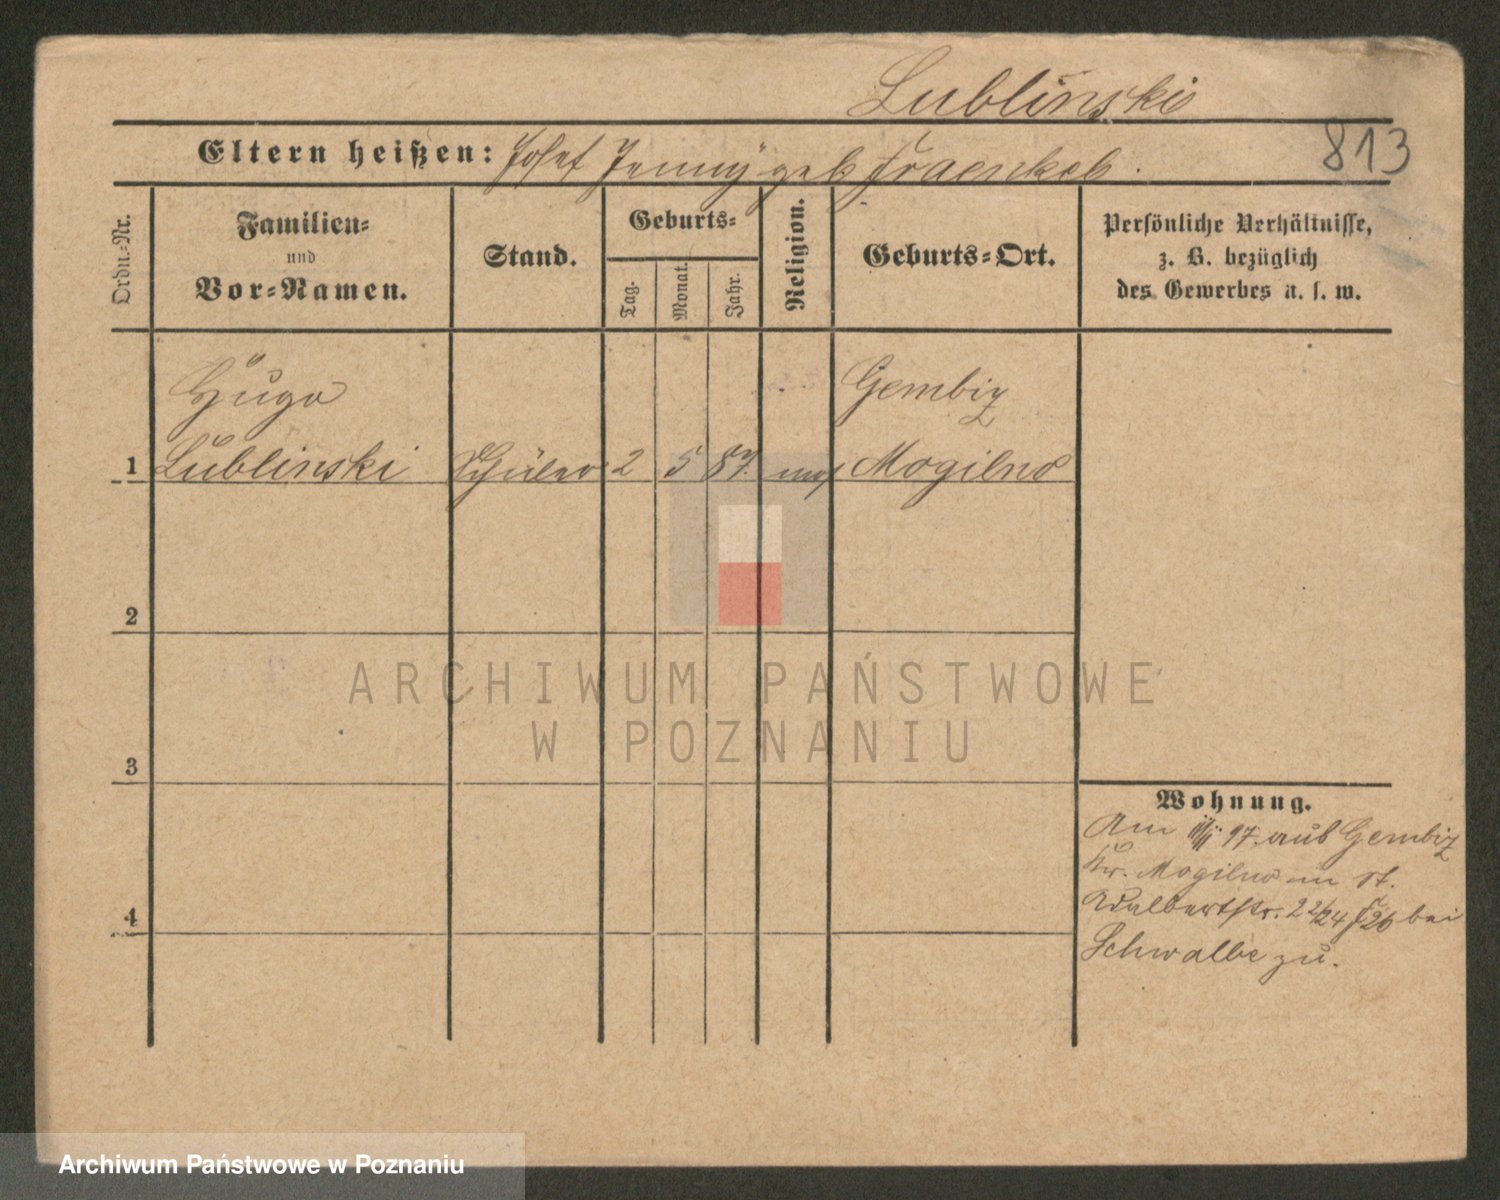 Lublinski
813
Eltern heißen: Josef Jenny geb Fraenkel.
Ordn.-Nr.
Familien- und Vor-Namen.
Stand.
Geburts-
Tag.
Monat.
Jahr.
Religion.
Geburts-Ort.
Persönliche Verhältnisse,
z. B. bezüglich
des Gewerbes u. s. w.
Hugo
Gembiz
1 Lublinski Schüler 2 5 87. mos Mogilno
2
3
4
Wohnung.
Am 97. aus Gembiz
Kr. Mogilno in St.
Adalbertstr. 22/24 bei
Schwalbe zu.
ARCHIWUM PAŃSTWOWE
W POZNANIU
Archiwum Państwowe w Poznaniu